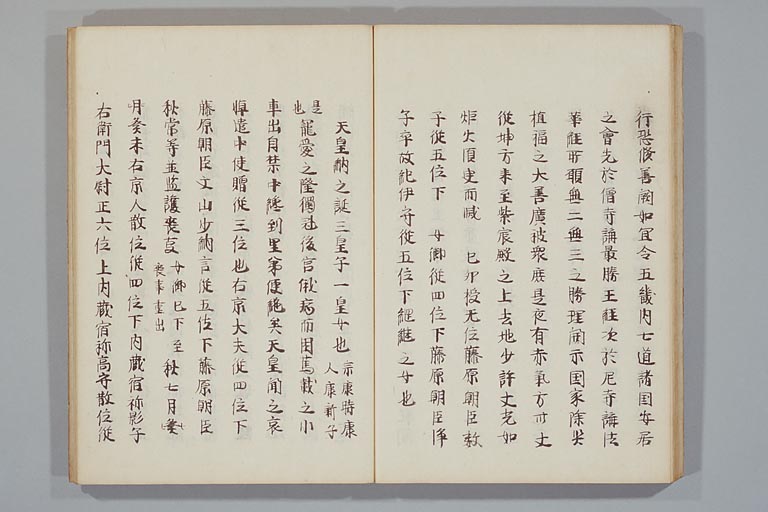 行恐修善闕如宜令五畿内七道諸国安居
之會先於僧寺講最勝王経次於尼寺講法
華経所願無二無三之勝理開示国家除災
植福之大善廣被衆庶是夜有赤氣方卌丈
従坤方来至紫宸殿之上去地少許丈光如
炬火須臾而滅 己卯授无位藤原朝臣数
子従五位下 女御従四位下藤原朝臣澤
子卒故紀伊守従五位下継之女也
天皇納之誕三皇子一皇女也 宗康時康人康新子
是也 寵愛之隆獨冠後宮俄病而困篤載之小
車出自禁中纔到里第便絶矣天皇聞之哀
悼遣中使贈従三位也右京大夫従四位下
藤原朝臣文山少納言従五位下藤原朝臣
秋常等並監護喪事 女御已下至喪事重出 秋七月
月癸未右京人散位従四位下内蔵宿祢影子
右衛門大尉正六位上内蔵宿祢高守散位従